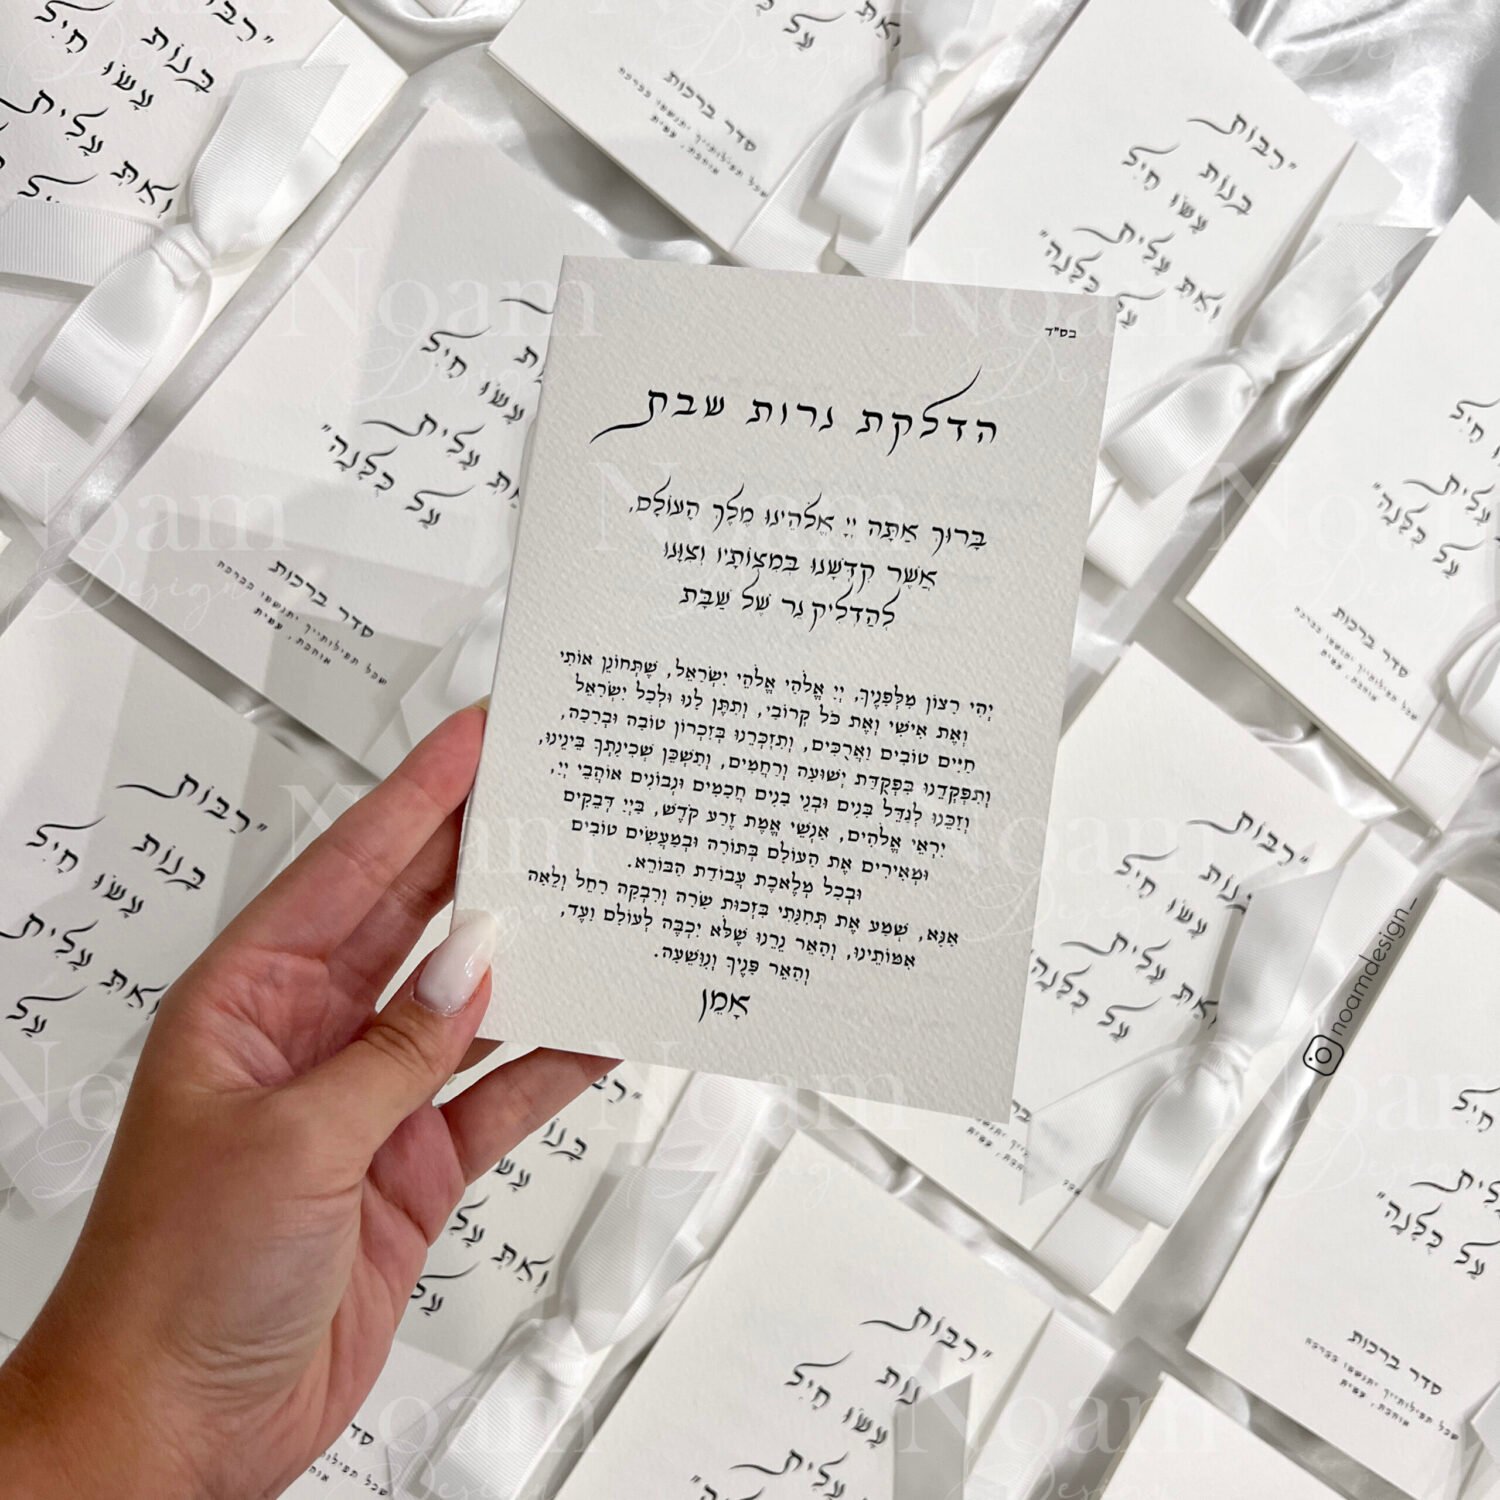 בס"ד
הדלקת נרות שבת
בָּרוּךְ אַתָּה יְיָ אֱלֹהֵינוּ מֶלֶךְ הָעוֹלָם,
אֲשֶׁר קִדְּשָׁנוּ בְּמִצְוֹתָיו וְצִוָּנוּ
לְהַדְלִיק נֵר שֶׁל שַׁבָּת
יְהִי רָצוֹן מִלְּפָנֶיךָ, יְיָ אֱלֹהַי אֱלֹהֵי יִשְׂרָאֵל, שֶׁתְּחוֹנֵן אוֹתִי
וְאֶת אִישִׁי וְאֶת כֹּל קְרוֹבַי, וְתִתֵּן לָנוּ וּלְכֹל יִשְׂרָאֵל
חַיִּים טוֹבִים וַאֲרֻכִּים, וְתִזְכְּרֵנוּ בְּזִכְרוֹן טוֹבָה וּבְרָכָה,
וְתִפְקְדֵנוּ בִּפְקֻדַּת יְשׁוּעָה וְרַחֲמִים, וְתַשְׁכֵּן שְׁכִינָתְךָ בֵּינֵינוּ,
וְזַכֵּנוּ לְגַדֵּל בָּנִים וּבְנֵי בָנִים חֲכָמִים וּנְבוֹנִים אוֹהֲבֵי יְיָ,
יִרְאֵי אֱלֹהִים, אַנְשֵׁי אֱמֶת זֶרַע קֹדֶשׁ, בַּיְיָ דְּבֵקִים
וּמְאִירִים אֶת הָעוֹלָם בְּתוֹרָה וּבְמַעֲשִׂים טוֹבִים
וּבְכָל מְלֶאכֶת עֲבוֹדַת הַבּוֹרֵא.
אָנָּא, שְׁמַע אֶת תְּחִנָּתִי בִּזְכוּת שָׂרָה וְרִבְקָה רָחֵל וְלֵאָה
אִמּוֹתֵינוּ, וְהָאֵר נֵרֵנוּ שֶׁלֹּא יִכְבֶּה לְעוֹלָם וָעֶד,
וְהָאֵר פָּנֶיךָ וְנִוָּשֵׁעָה.
אָמֵן
"רַבּוֹת
בָּנוֹת
עָשׂוּ חָיִל
וְאַתְּ עָלִית
עַל כֻּלָּנָה"
סדר ברכות
שכל תפילותייך יתגשמו בברכה
אוהבת, עמית
noamdesign_
Noam
Design